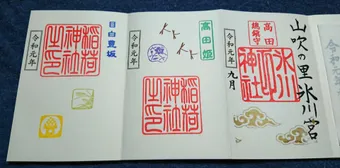 山吹の里 氷川宮
高田
總鎮守
氷川
神社
令和元年
九月
高田姫
稲荷
神社
之印
令和元年
目白豊坂
稲荷
神社
之印
令和元年